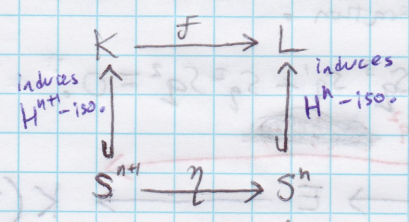 K F L
induces
H^{n+1}-iso.
induces
H^n-iso.
S^{n+1} η S^n